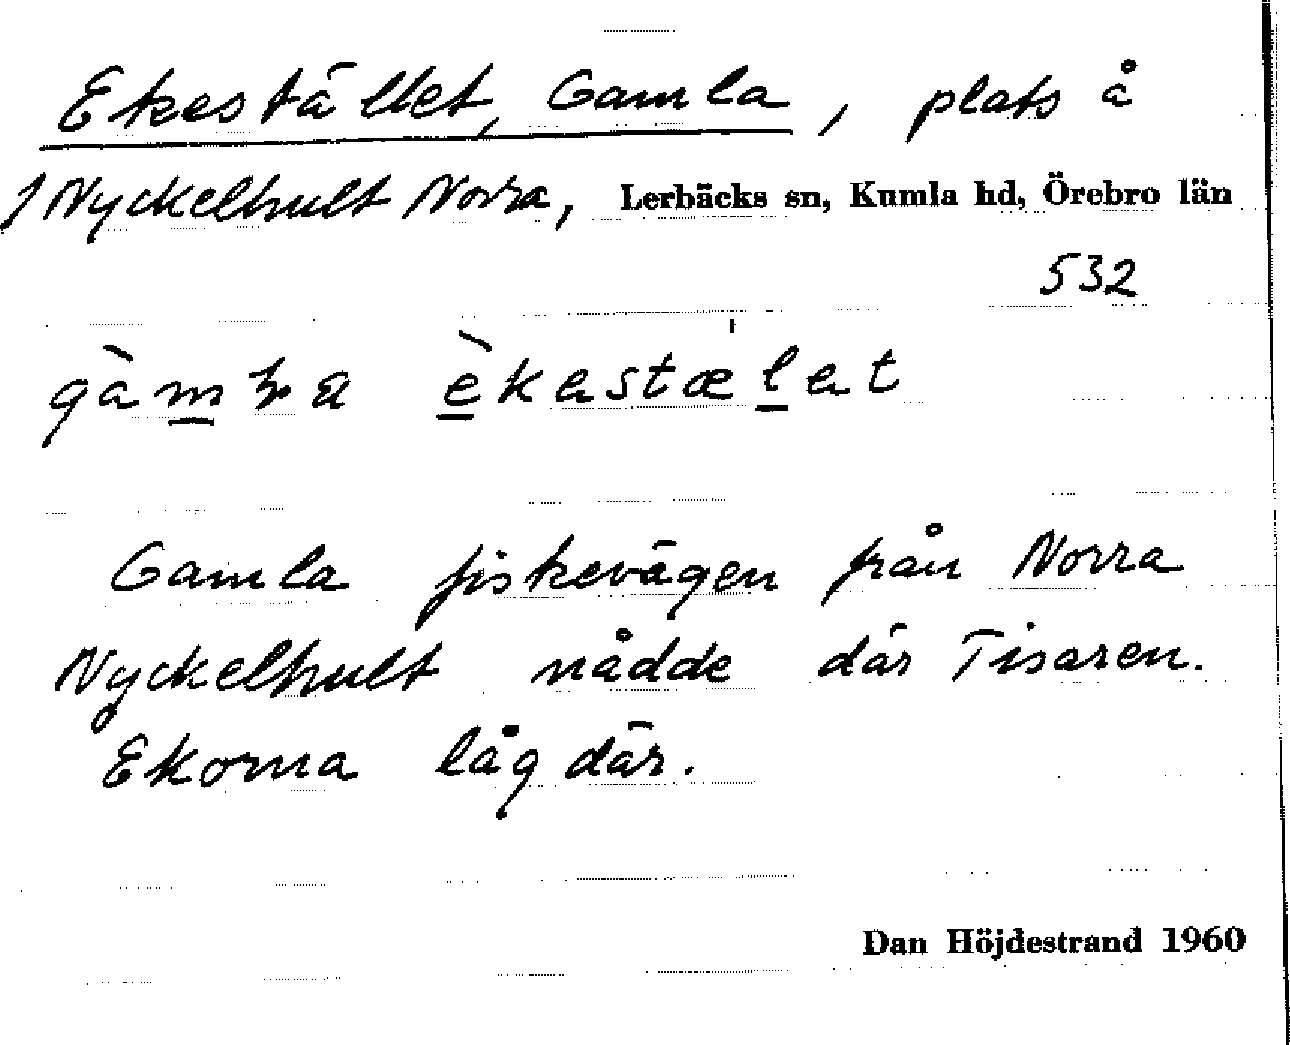 Ekestället, Gamla, plats å
1 Nyckelhult Norra, Lerbäcks sn, Kumla hd, Örebro län
532
Gamla fiskevägen från Norra
Nyckelhult nådde där Tisaren.
Ekorna låg där.
Dan Höjdestrand 1960